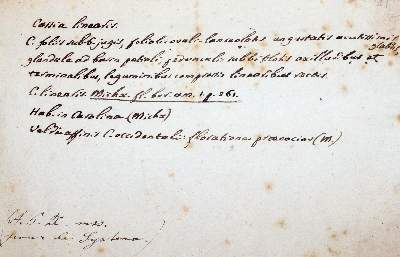 Cassia linearis.
C. foliis sub 6-jugis, foliolis ovali-lanceolatis angustatis acutissimis glabris,
glandula ad basin petioli, pedunculis subbifloris axillaribus et
terminalibus, leguminibus compressis linearibus rectis.
C. linearis. Michx. fl. bor. am. 1 p. 261.
Hab. in Carolina (Michx)
Valde affinis C. occidentali: floratione praecocior (M.)
mss.
de Systema.)